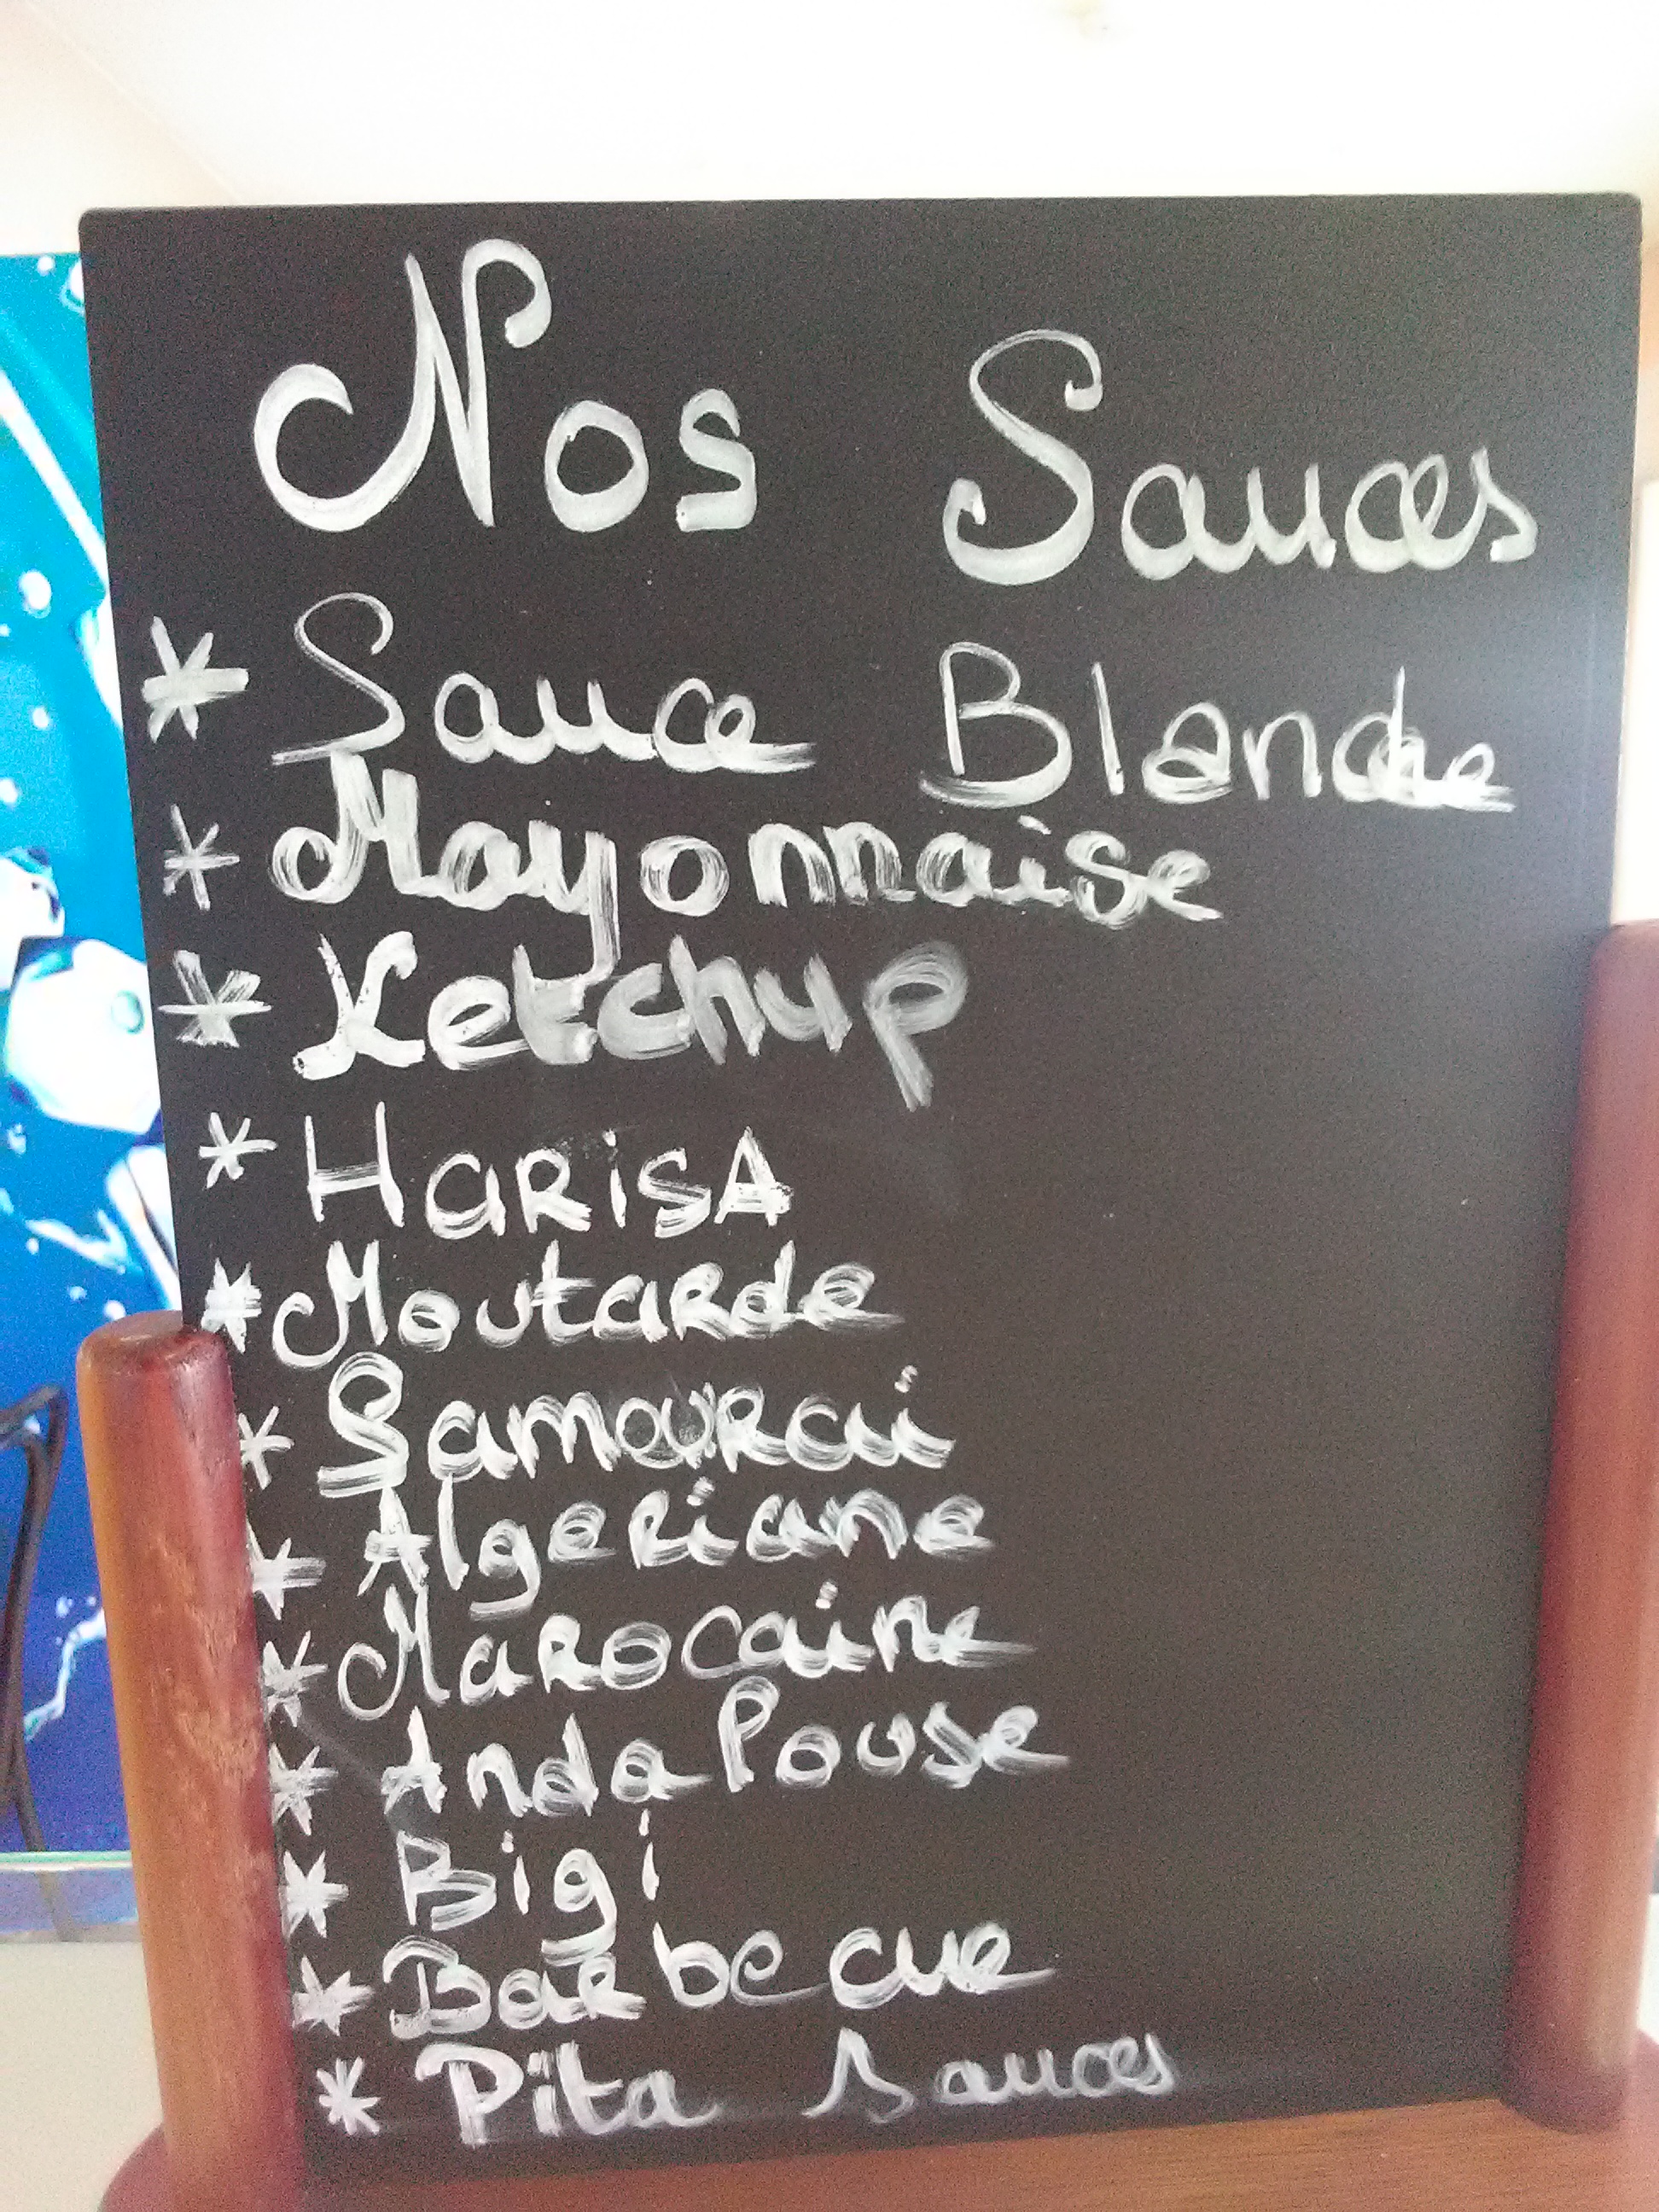 Nos Sauces
* Sauce Blanche
* Mayonnaise
* Ketchup
* HARISA
* Moutarde
* Samourai
* Algeriane
* Marocaine
* AndaPouse
* Bigi
* Barbecue
* Pita Sauces